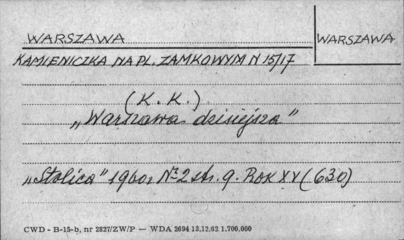 WARSZAWA
WARSZAWA
KAMIENICZKA NA PL. ZAMKOWYM N 15/17
(K. K.)
„Warszawa dzisiejsza"
„Stolica" 1960r № 2 str. 9. ROK XV (630)
CWD - B-15-b, nr 2827/ZW/P — WDA 2694 13.12.62 1.700.000